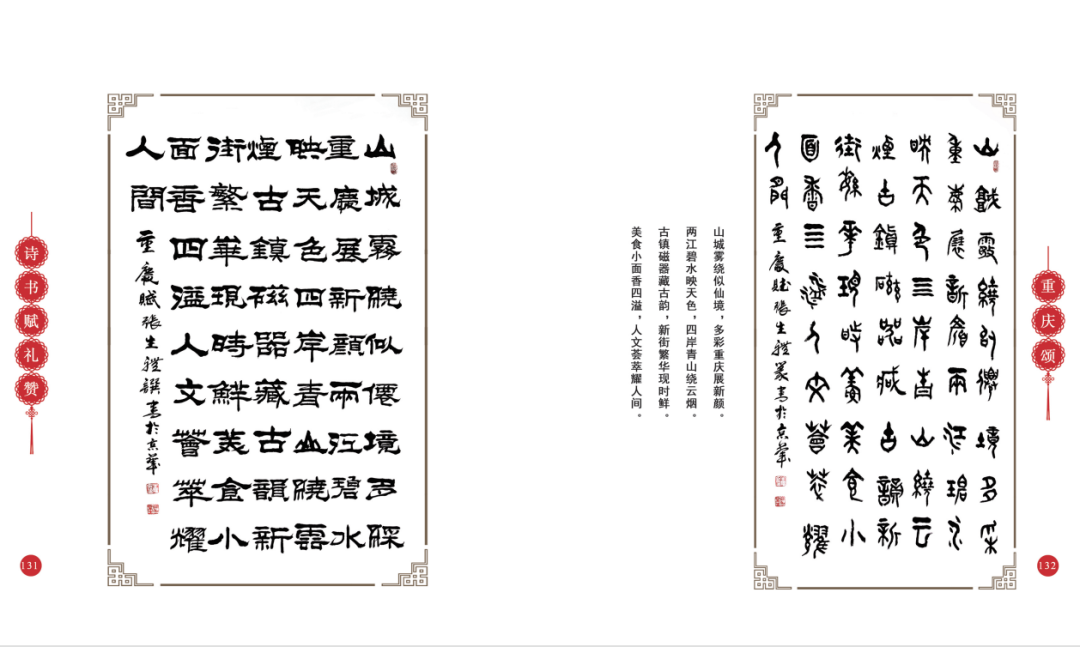 诗书赋礼赞
131
山城霧繞似僊境多綵
重慶展新顏兩江碧水
映天色四岸青山繞雲
煙古鎮磁器藏古韻新
街繁華現時鮮美食小
面香四溢人文薈萃耀
人間
重慶賦張生禮撰書於京華
山城雾绕似仙境，多彩重庆展新颜。
两江碧水映天色，四岸青山绕云烟。
古镇磁器藏古韵，新街繁华现时鲜。
美食小面香四溢，人文荟萃耀人间。
山城霧繞似僊境多采
重慶展新顏兩江碧水
映天色四岸青山繞云
煙古鎮磁器藏古韻新
街繁華現時鮮美食小
面香四溢人文薈萃耀
人間
重慶賦張生禮篆書於京華
重庆颂
132